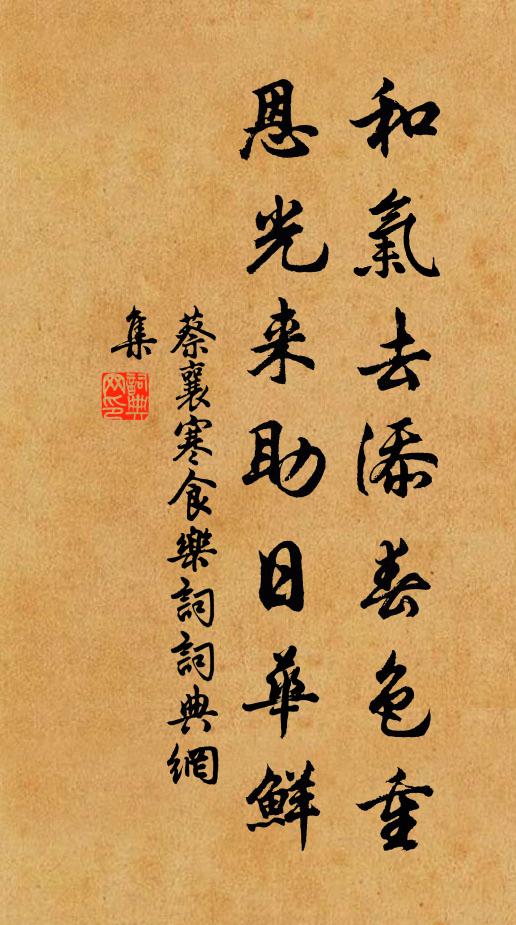 和氣去添春色重
恩光来助日華鮮
蔡襄寒食樂詞詞典網
集
詞典
网印